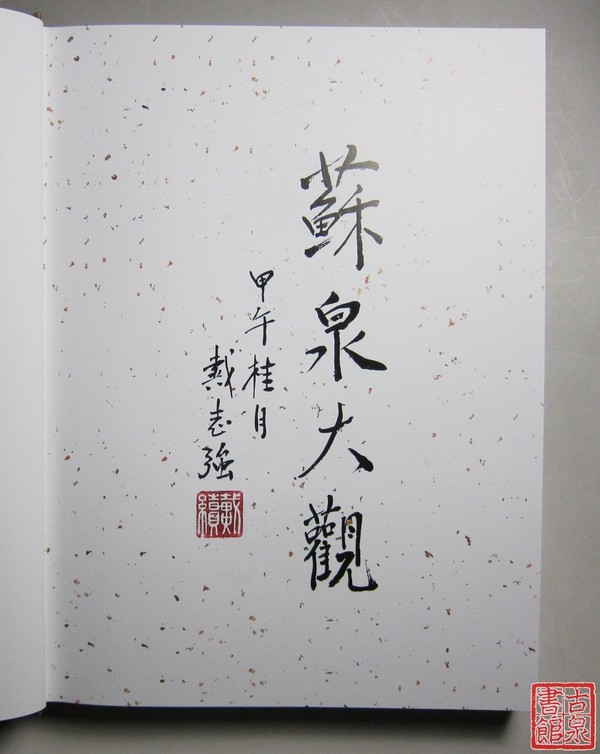 蘇泉大觀
甲午桂月
戴志強
古泉
書館